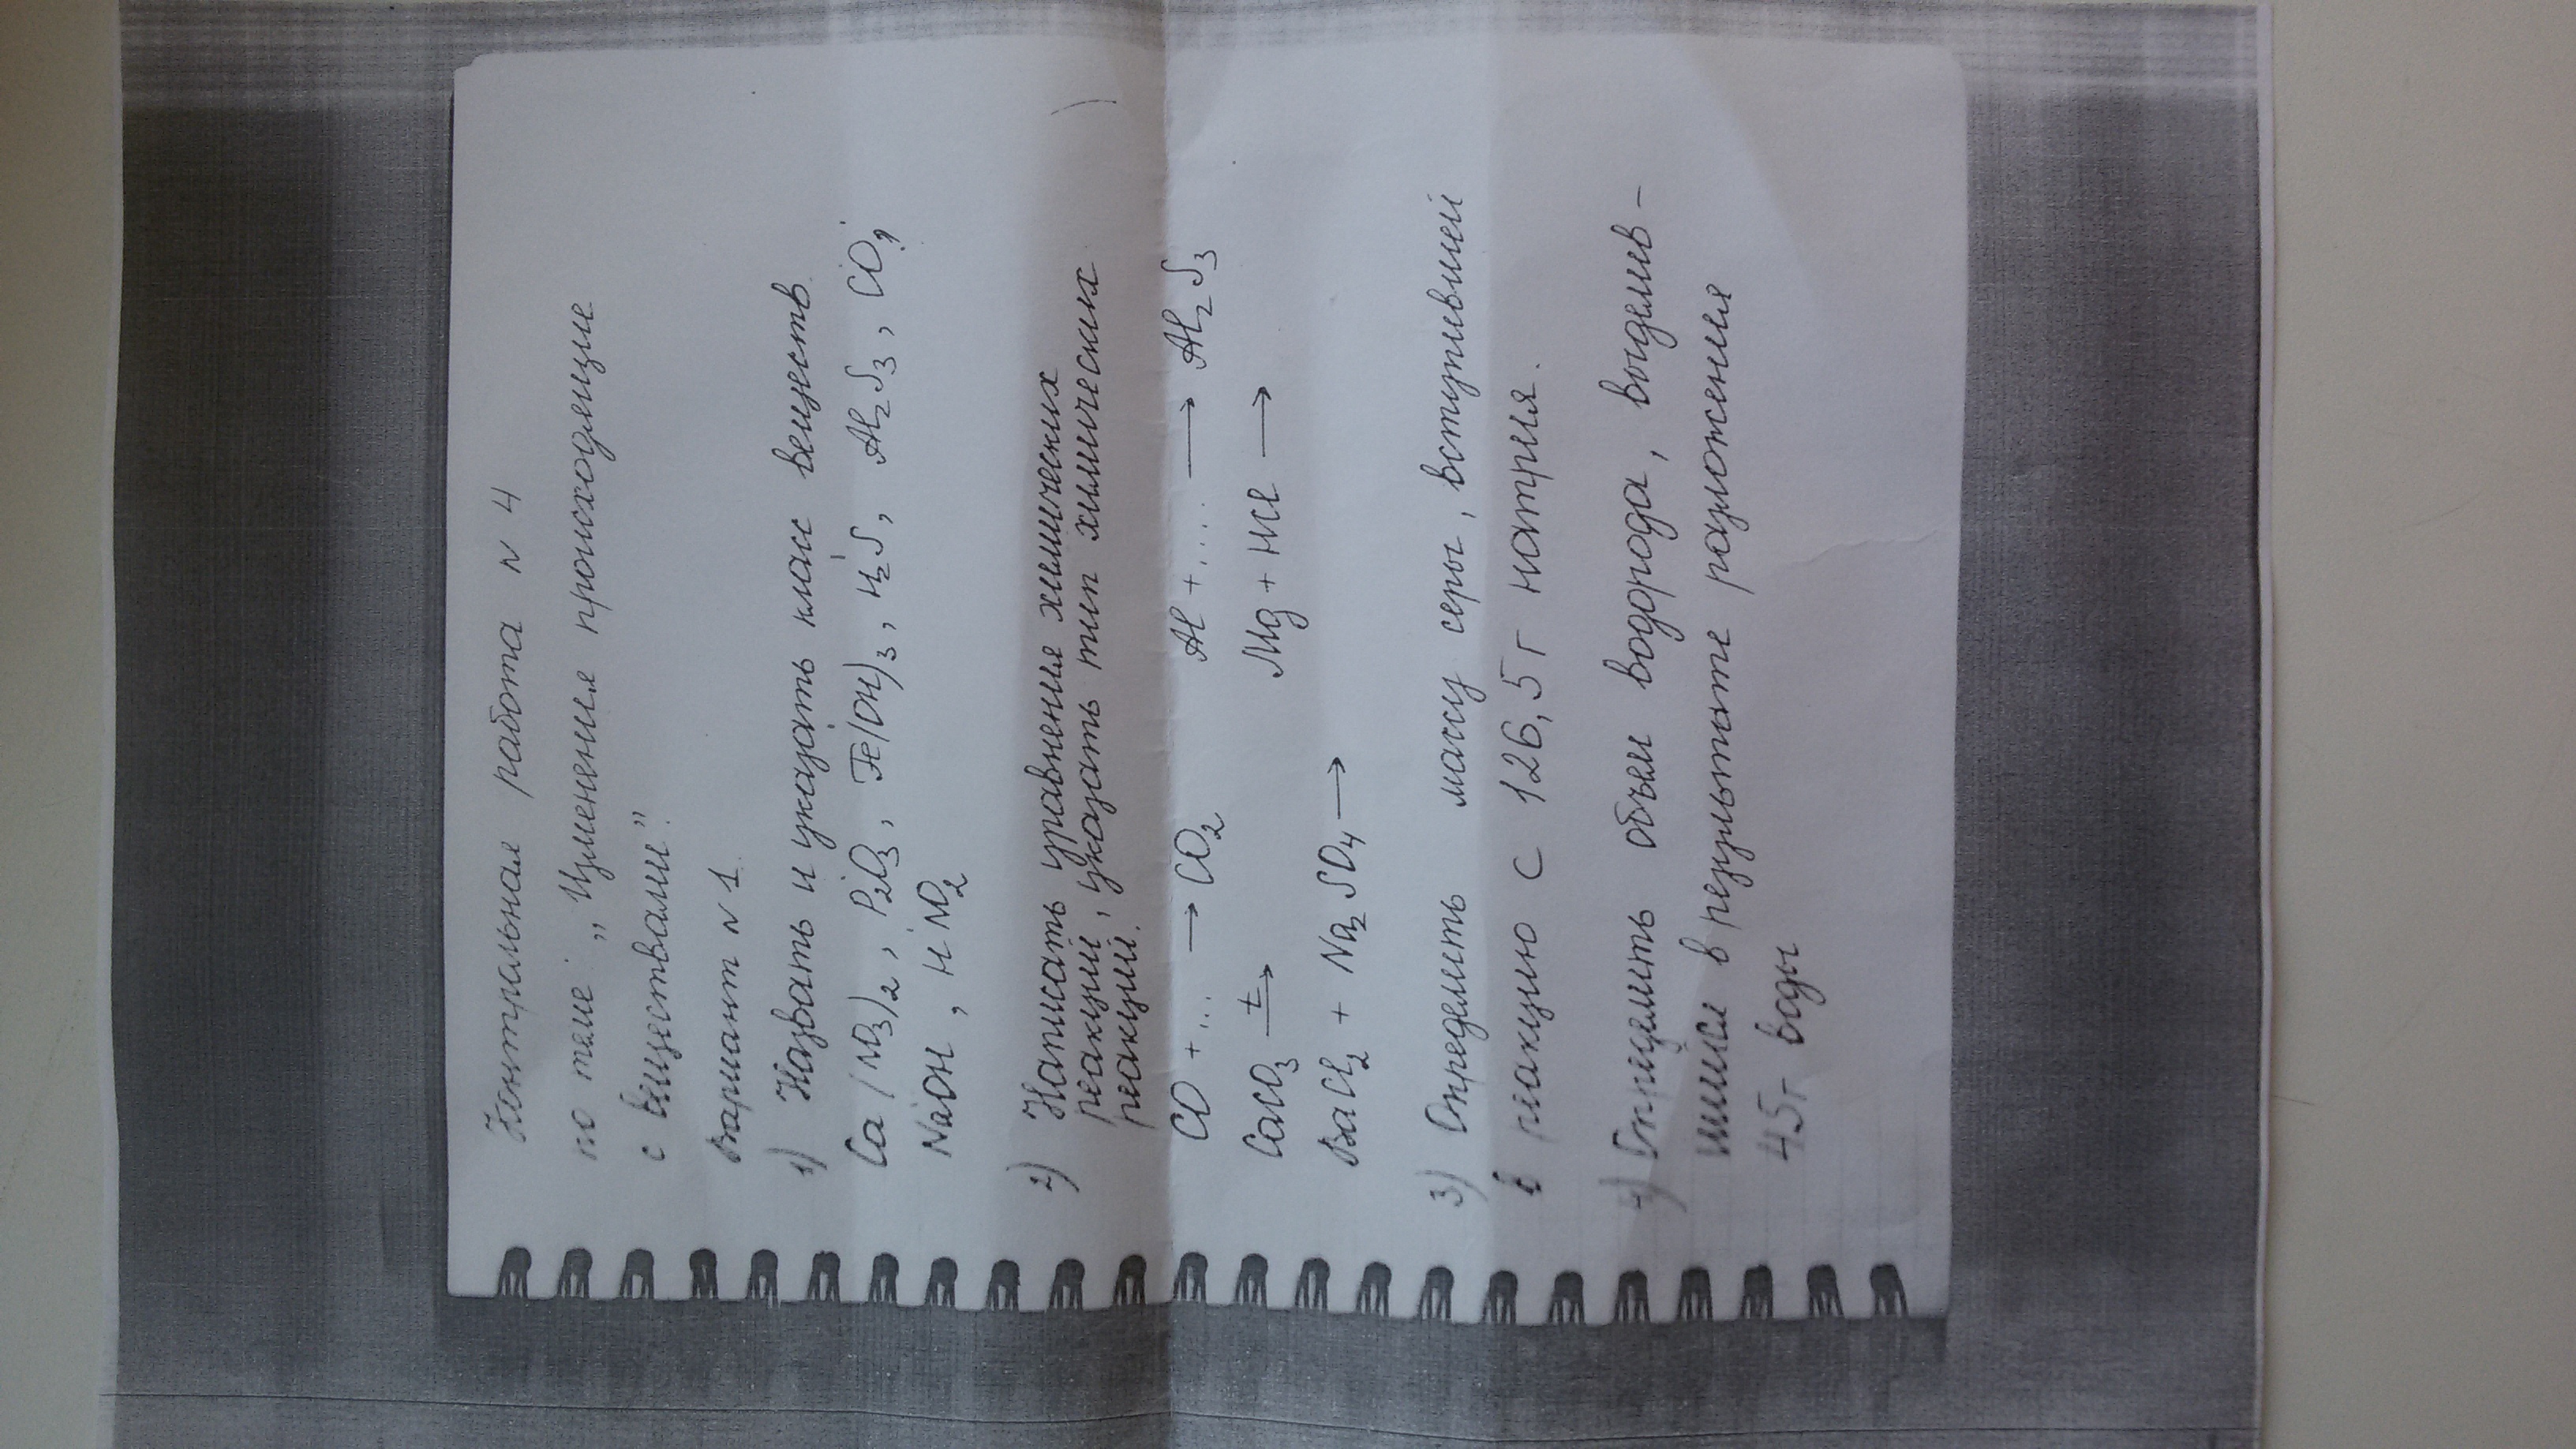 Контрольная работа N 4
по теме „Изменения происходящие
с веществами".
вариант N 1
1) Назвать и указать класс веществ
Ca(NO3)2, P2O3, Fe(OH)3, H2S, Al2S3, CO,
NaOH, HNO2
2) Написать уравнения химических
реакций, указать тип химических
реакций.
CO + ... → CO2 Al + .... → Al2S3
CaCO3 t→ Mg + HCl →
BaCl2 + Na2SO4 →
3) Определить массу серы, вступившей
в реакцию с 126,5 г натрия.
4) Определить объем водорода, выделив-
шийся в результате разложения
45 г воды